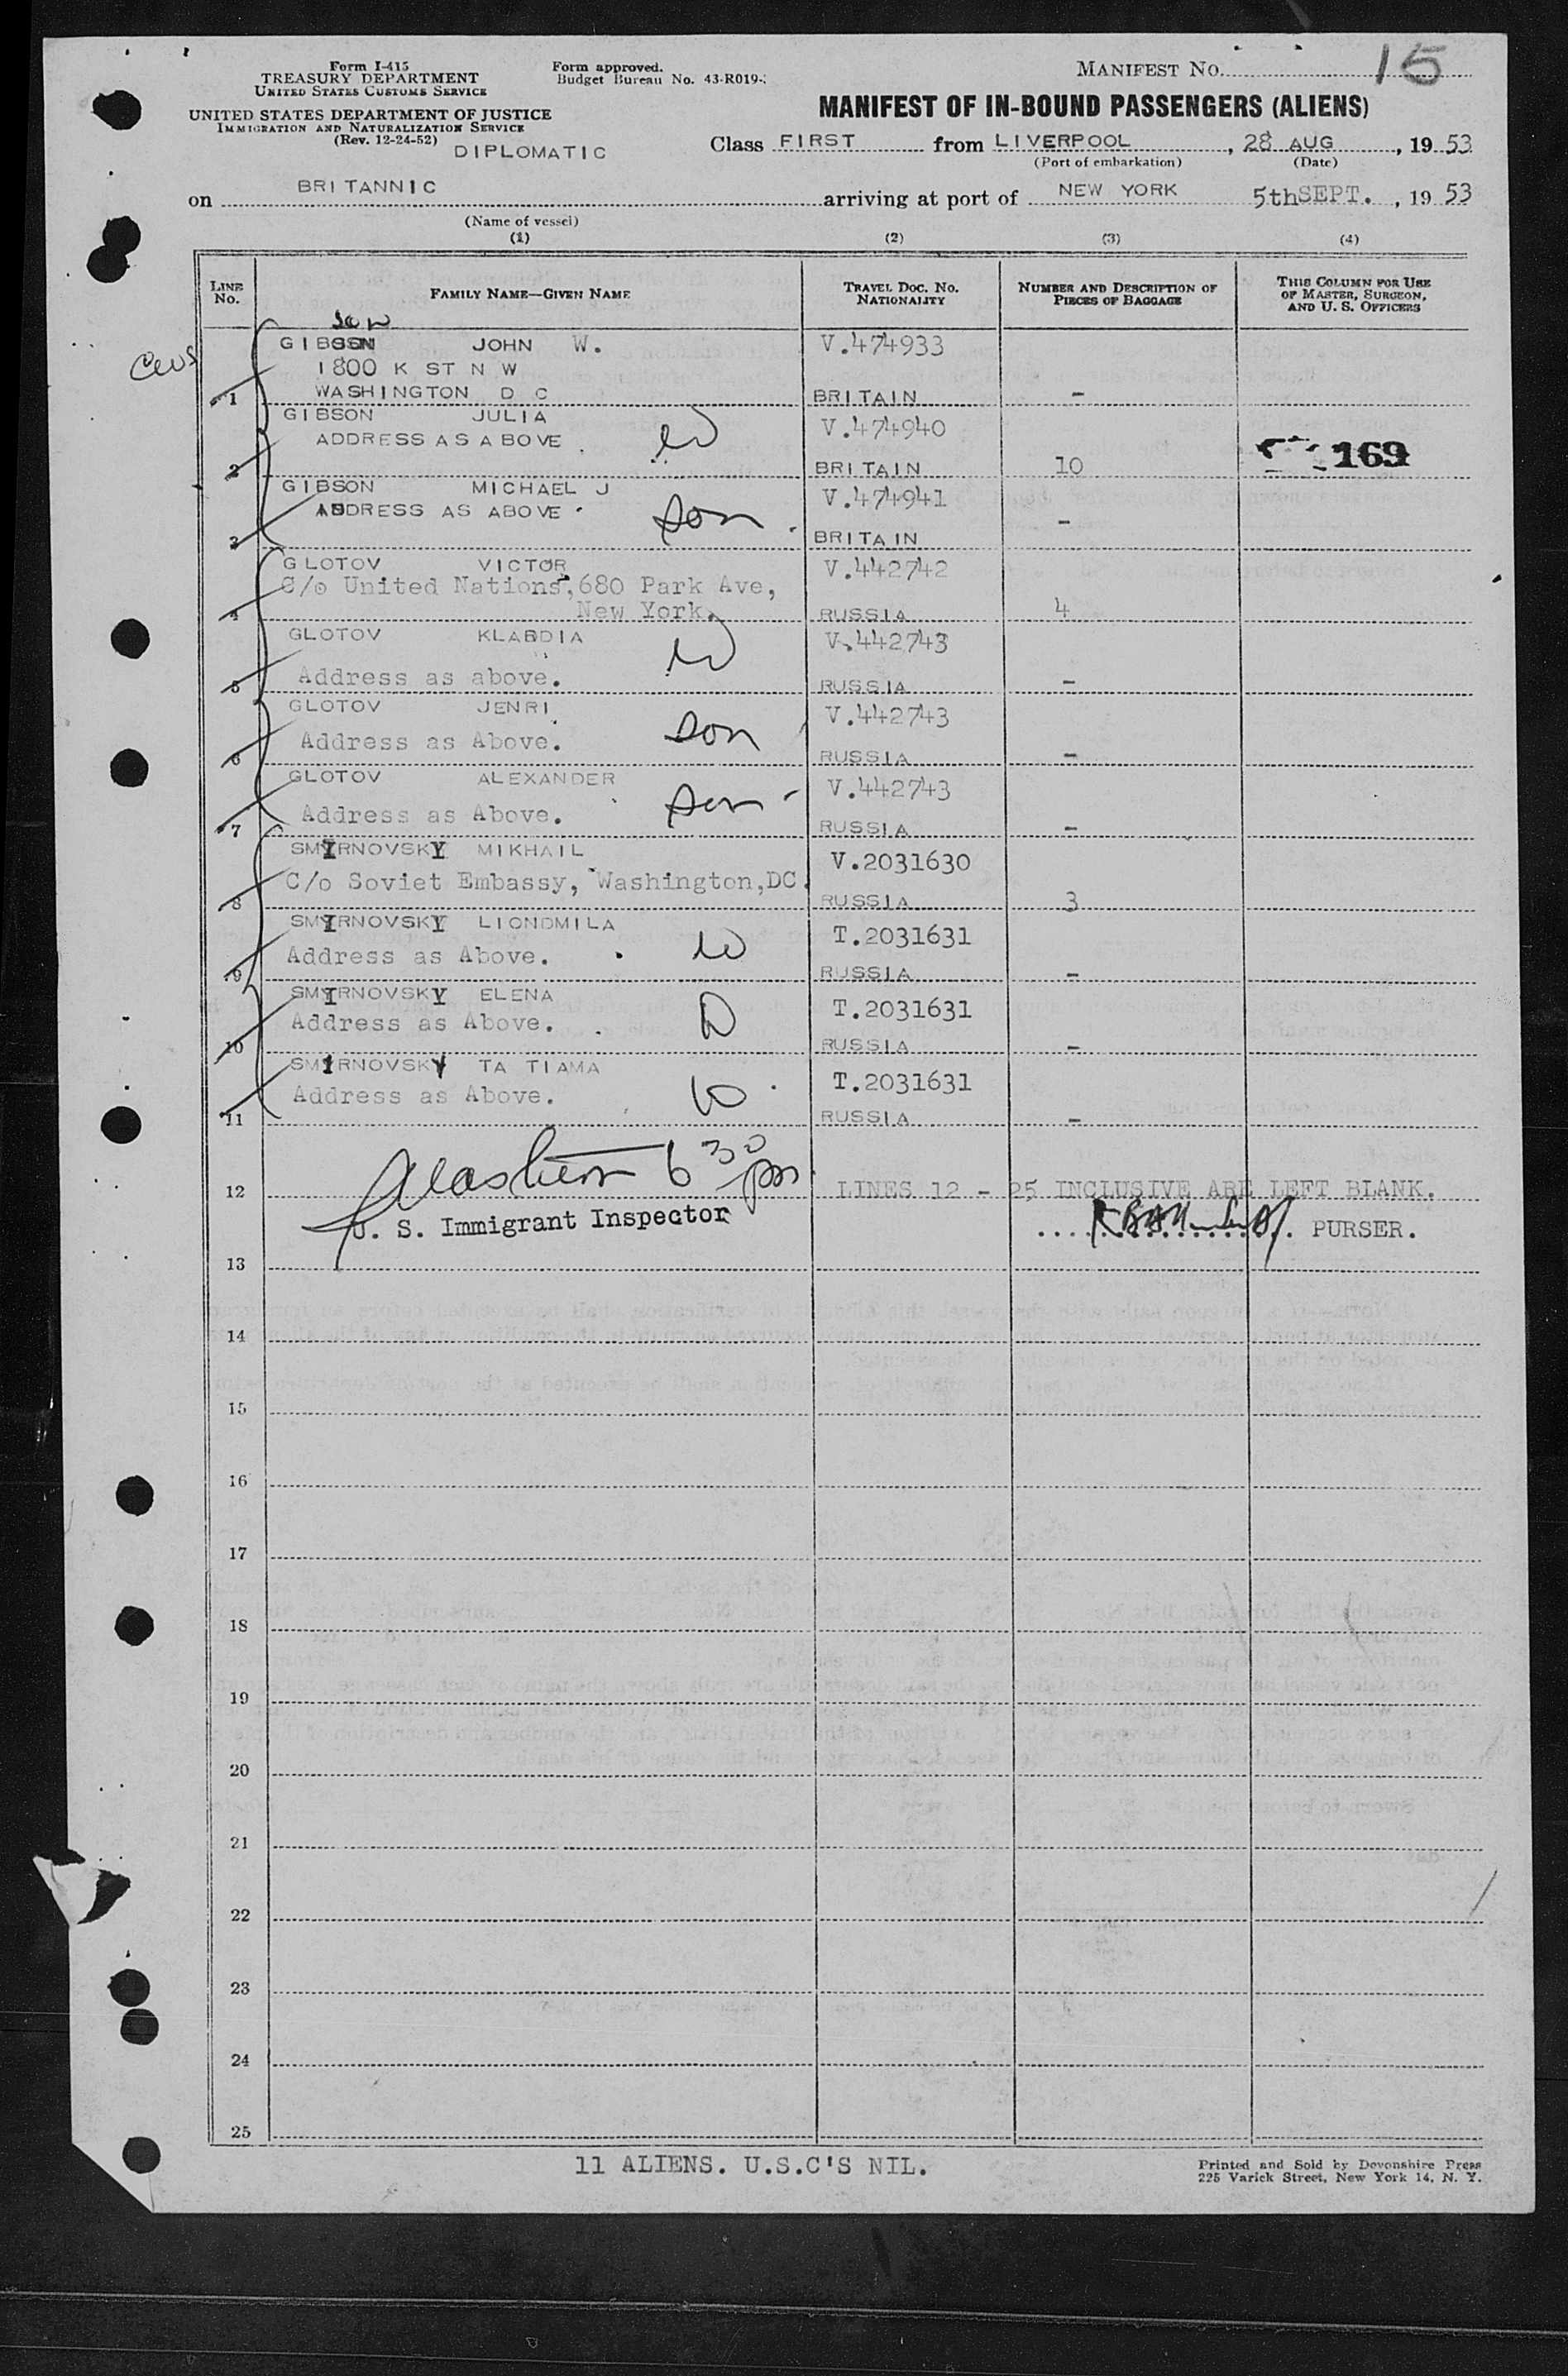 Form I-415
TREASURY DEPARTMENT
UNITED STATES CUSTOMS SERVICE
UNITED STATES DEPARTMENT OF JUSTICE
IMMIGRATION AND NATURALIZATION SERVICE
(Rev. 12-24-52)
DIPLOMATIC
Form approved.
Budget Bureau No. 43-R019-
MANIFEST No. 15
MANIFEST OF IN-BOUND PASSENGERS (ALIENS)
Class FIRST from LIVERPOOL, 28 AUG, 1953
(Port of embarkation) (Date)
on BRITANNIC arriving at port of NEW YORK 5th SEPT., 1953
(Name of vessel)
(1) (2) (3) (4)
LINE No. FAMILY NAME—GIVEN NAME TRAVEL DOC. No. NATIONALITY NUMBER AND DESCRIPTION OF PIECES OF BAGGAGE THIS COLUMN FOR USE OF MASTER, SURGEON, AND U. S. OFFICERS
son
GIBSON JOHN W. V.474933
1800 K ST N W
1 WASHINGTON D C BRITAIN -
GIBSON JULIA W V.474940
ADDRESS AS ABOVE. 169
2 BRITAIN 10
GIBSON MICHAEL J V.474941
ADDRESS AS ABOVE. son
3 BRITAIN -
GLOTOV VICTOR V.442742
C/o United Nations, 680 Park Ave,
4 New York. RUSSIA 4
GLOTOV KLABDIA W V.442743
5 Address as above. RUSSIA -
GLOTOV JENRI V.442743
Address as Above. son
6 RUSSIA -
GLOTOV ALEXANDER V.442743
Address as Above. son
7 RUSSIA -
SMIRNOVSKY MIKHAIL V.2031630
C/o Soviet Embassy, Washington,DC.
8 RUSSIA 3
SMIRNOVSKY LIONDMILA T.2031631
Address as Above. W
9 RUSSIA -
SMIRNOVSKY ELENA T.2031631
Address as Above. D
10 RUSSIA -
SMIRNOVSKY TA TIAMA T.2031631
Address as Above. D
11 RUSSIA -
6 30 pm
12 LINES 12 - 25 INCLUSIVE ARE LEFT BLANK.
U. S. Immigrant Inspector PURSER.
13
14
15
16
17
18
19
20
21
22
23
24
25
11 ALIENS. U.S.C'S NIL.
Printed and Sold by Devonshire Press
225 Varick Street, New York 14, N. Y.